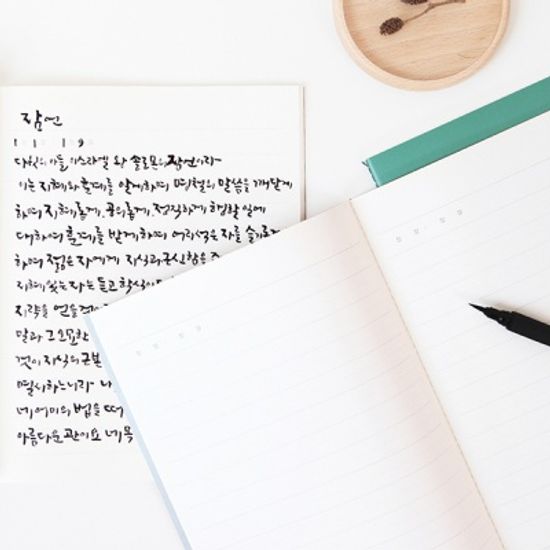 잠언
1 1 1 9
다윗의 아들 이스라엘 왕 솔로몬의 잠언이라
이는 지혜와 훈계를 알게하며 명철의 말씀을 깨닫게
하며 지혜롭게, 공의롭게, 정직하게 행할 일에
대하여 훈계를 받게하며 어리석은 자를 슬기롭게
하며 젊은 자에게 지식과 근신함을
지혜 있는 자는 듣고 학식이
지략을 얻을 것이
말과 그 오묘한
것이 지식의 근본
멸시하느니라 나
네 어미의 법을 떠
아름다운 관이요 네 목
장 절 장 절
장 절 장 절